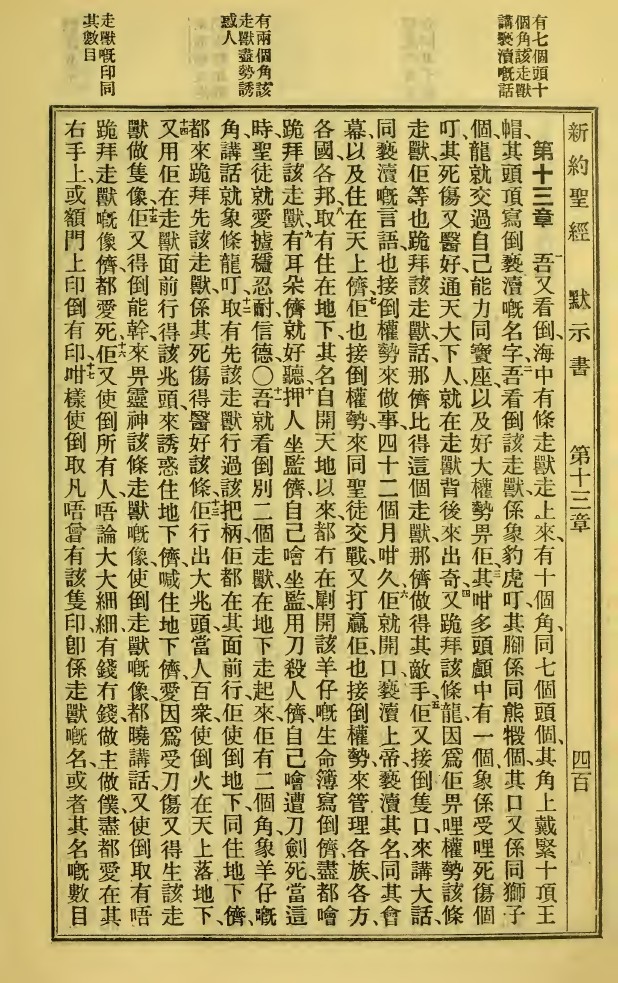 有七個頭十
個角該走獸
講褻瀆嘅話
有兩個角該
走獸盡勢誘
惑人
走獸嘅印同
其數目
新約聖經 默示書 第十三章 四百
第十三章 一吾又看倒、海中有條走獸走上來、有十個角、同七個頭個、其角上戴緊十頂王
帽、其頭頂寫倒褻瀆嘅名字、二吾看倒該走獸、係象豹虎、叮其腳係同熊𤠣個、其口又係同獅子
個、龍就交過自己能力、同寶座、以及好大權勢畀佢、三其咁多頭顱中、有一個象係受哩死傷個、
叮其死傷又醫好、通天大下人、就在走獸背後來出奇、四又跪拜該條龍、因爲佢畀哩權勢該條
走獸、佢等也跪拜該走獸、話、那儕比得這個走獸、那儕做得其敵手、五佢又接倒隻口來講大話、
同褻瀆嘅言語、也接倒權勢來做事、四十二個月咁久、六佢就開口褻瀆上帝、褻瀆其名、同其會
幕、以及住在天上儕、七佢也接倒權勢、來同聖徒交戰、又打贏佢、也接倒權勢、來管理各族各方、
各國各邦、八取有住在地下、其名自開天地以來、都冇在劏開該羊仔嘅生命簿寫倒儕、盡都噲
跪拜該走獸、九有耳朵儕、就好聽、十押人坐監儕、自己噲坐監、用刀殺人儕、自己噲遭刀劍死、當這
時聖徒就愛據穩忍耐信德〇十一吾就看倒別二個走獸、在地下走起來、佢有二個角、象羊仔嘅
角、講話就象條龍、十二叮取有先該走獸行過該把柄、佢都在其面前行、佢使倒地下、同住地下儕、
都來跪拜先該走獸、係其死傷得醫好該條、十三佢行出大兆頭、當人百衆、使倒火在天上落地下、
十四又用佢在走獸面前行得該兆頭、來誘惑住地下儕、喊住地下儕、愛因爲受刀傷又得生該走
獸、做隻像、十五佢又得倒能幹、來畀靈神該條走獸嘅像、使倒走獸嘅像、都曉講話、又使倒取有唔
跪拜走獸嘅像儕都愛死、十六佢又使倒所有人、唔論大大細細、有錢冇錢、做主做僕、盡都愛在其
右手上、或額門上、印倒有印、十七咁樣使倒取凡唔曾有該隻印、卽係走獸嘅名、或者其名嘅數目